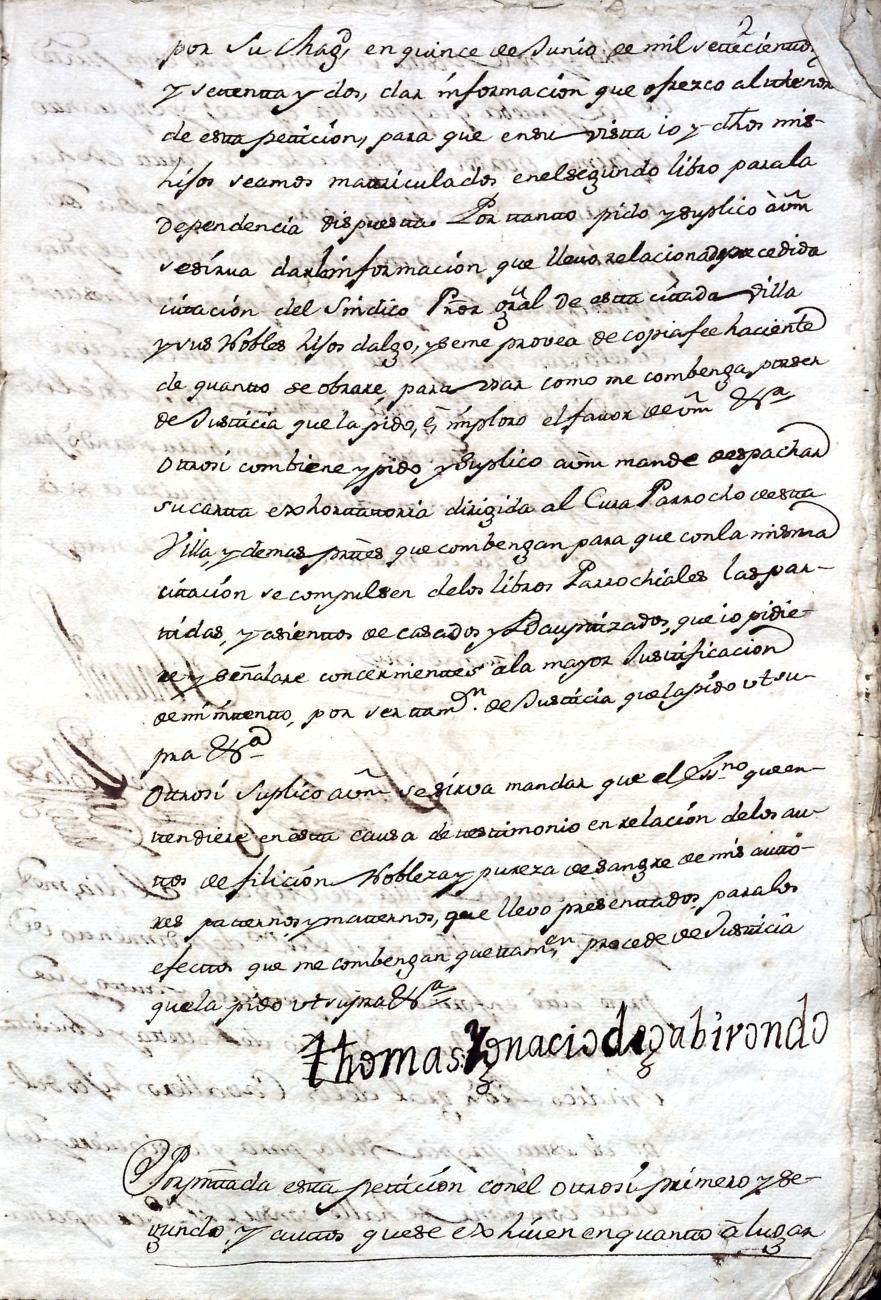 2
por Su Magd, en quince de Junio de mil settecientos
y settentta y dos, dar informacion que ofrezco al thenor
de estta petticion, para que en su vistta io y dhos mis
hisos seamos mattriculados en el segundo libro para la
Dependencia dispuestta. Por ttantto pido y suplico à vm
se sirva dar la informacion que llevo relacionada precedida
cittación del Sindico Prôr gral de estta cittada Villa
y sus Nobles hisos dalgo, y se me provea de copia fee hacientte
de quantto se obrare, para usar como me combenga, por ser
de Justicia que la pido, è, imploro el favor de vm &ra
Ottrosi combiene y pido y suplico a vm mande despachar
su cartta exhorttattoria dirigida al Cura Parrocho de estta
Villa, y demas prttes que combengan para que con la misma
cittación se compulsen de los libros Parrochiales las par-
ttidas, y asienttos de casados y Bauptizados, que io pidie-
re y señalare concerniénttes à la mayor Justtificacion
de mi inttentto, por ser ttamn. de Justicia que la pido utsu-
pra &ra
Ottrosi Suplico a vm se sirva mandar que el Ssno que en-
ttendiere en estta causa de testtimonio en relación de los au-
ttos de filición Nobleza y pureza de sangre de mis autto-
res patternos y matternos, que llevo presenttados, para los
efecttos que me combengan que ttamen procede de Justticia
que la pido ut supra &ra
Thomas Ygnacio de gabirondo
Por presenttada estta petticion con el ottrosi primero y se-
gundo, y auttos que se exhiven en quantto à lugar